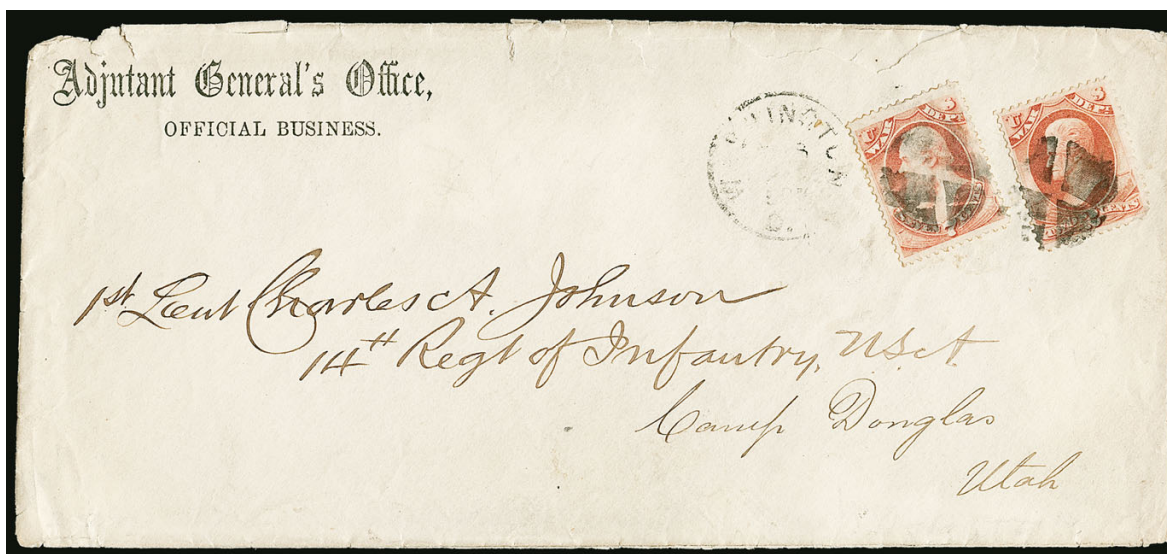 Adjutant General's Office,
OFFICIAL BUSINESS.
WASHINGTON
U S
WAR DEPT
U S
WAR DEPT
CENTS
1st Leut Charles A. Johnson
14th Regt of Infantry, U.S.A
Camp Douglas
Utah